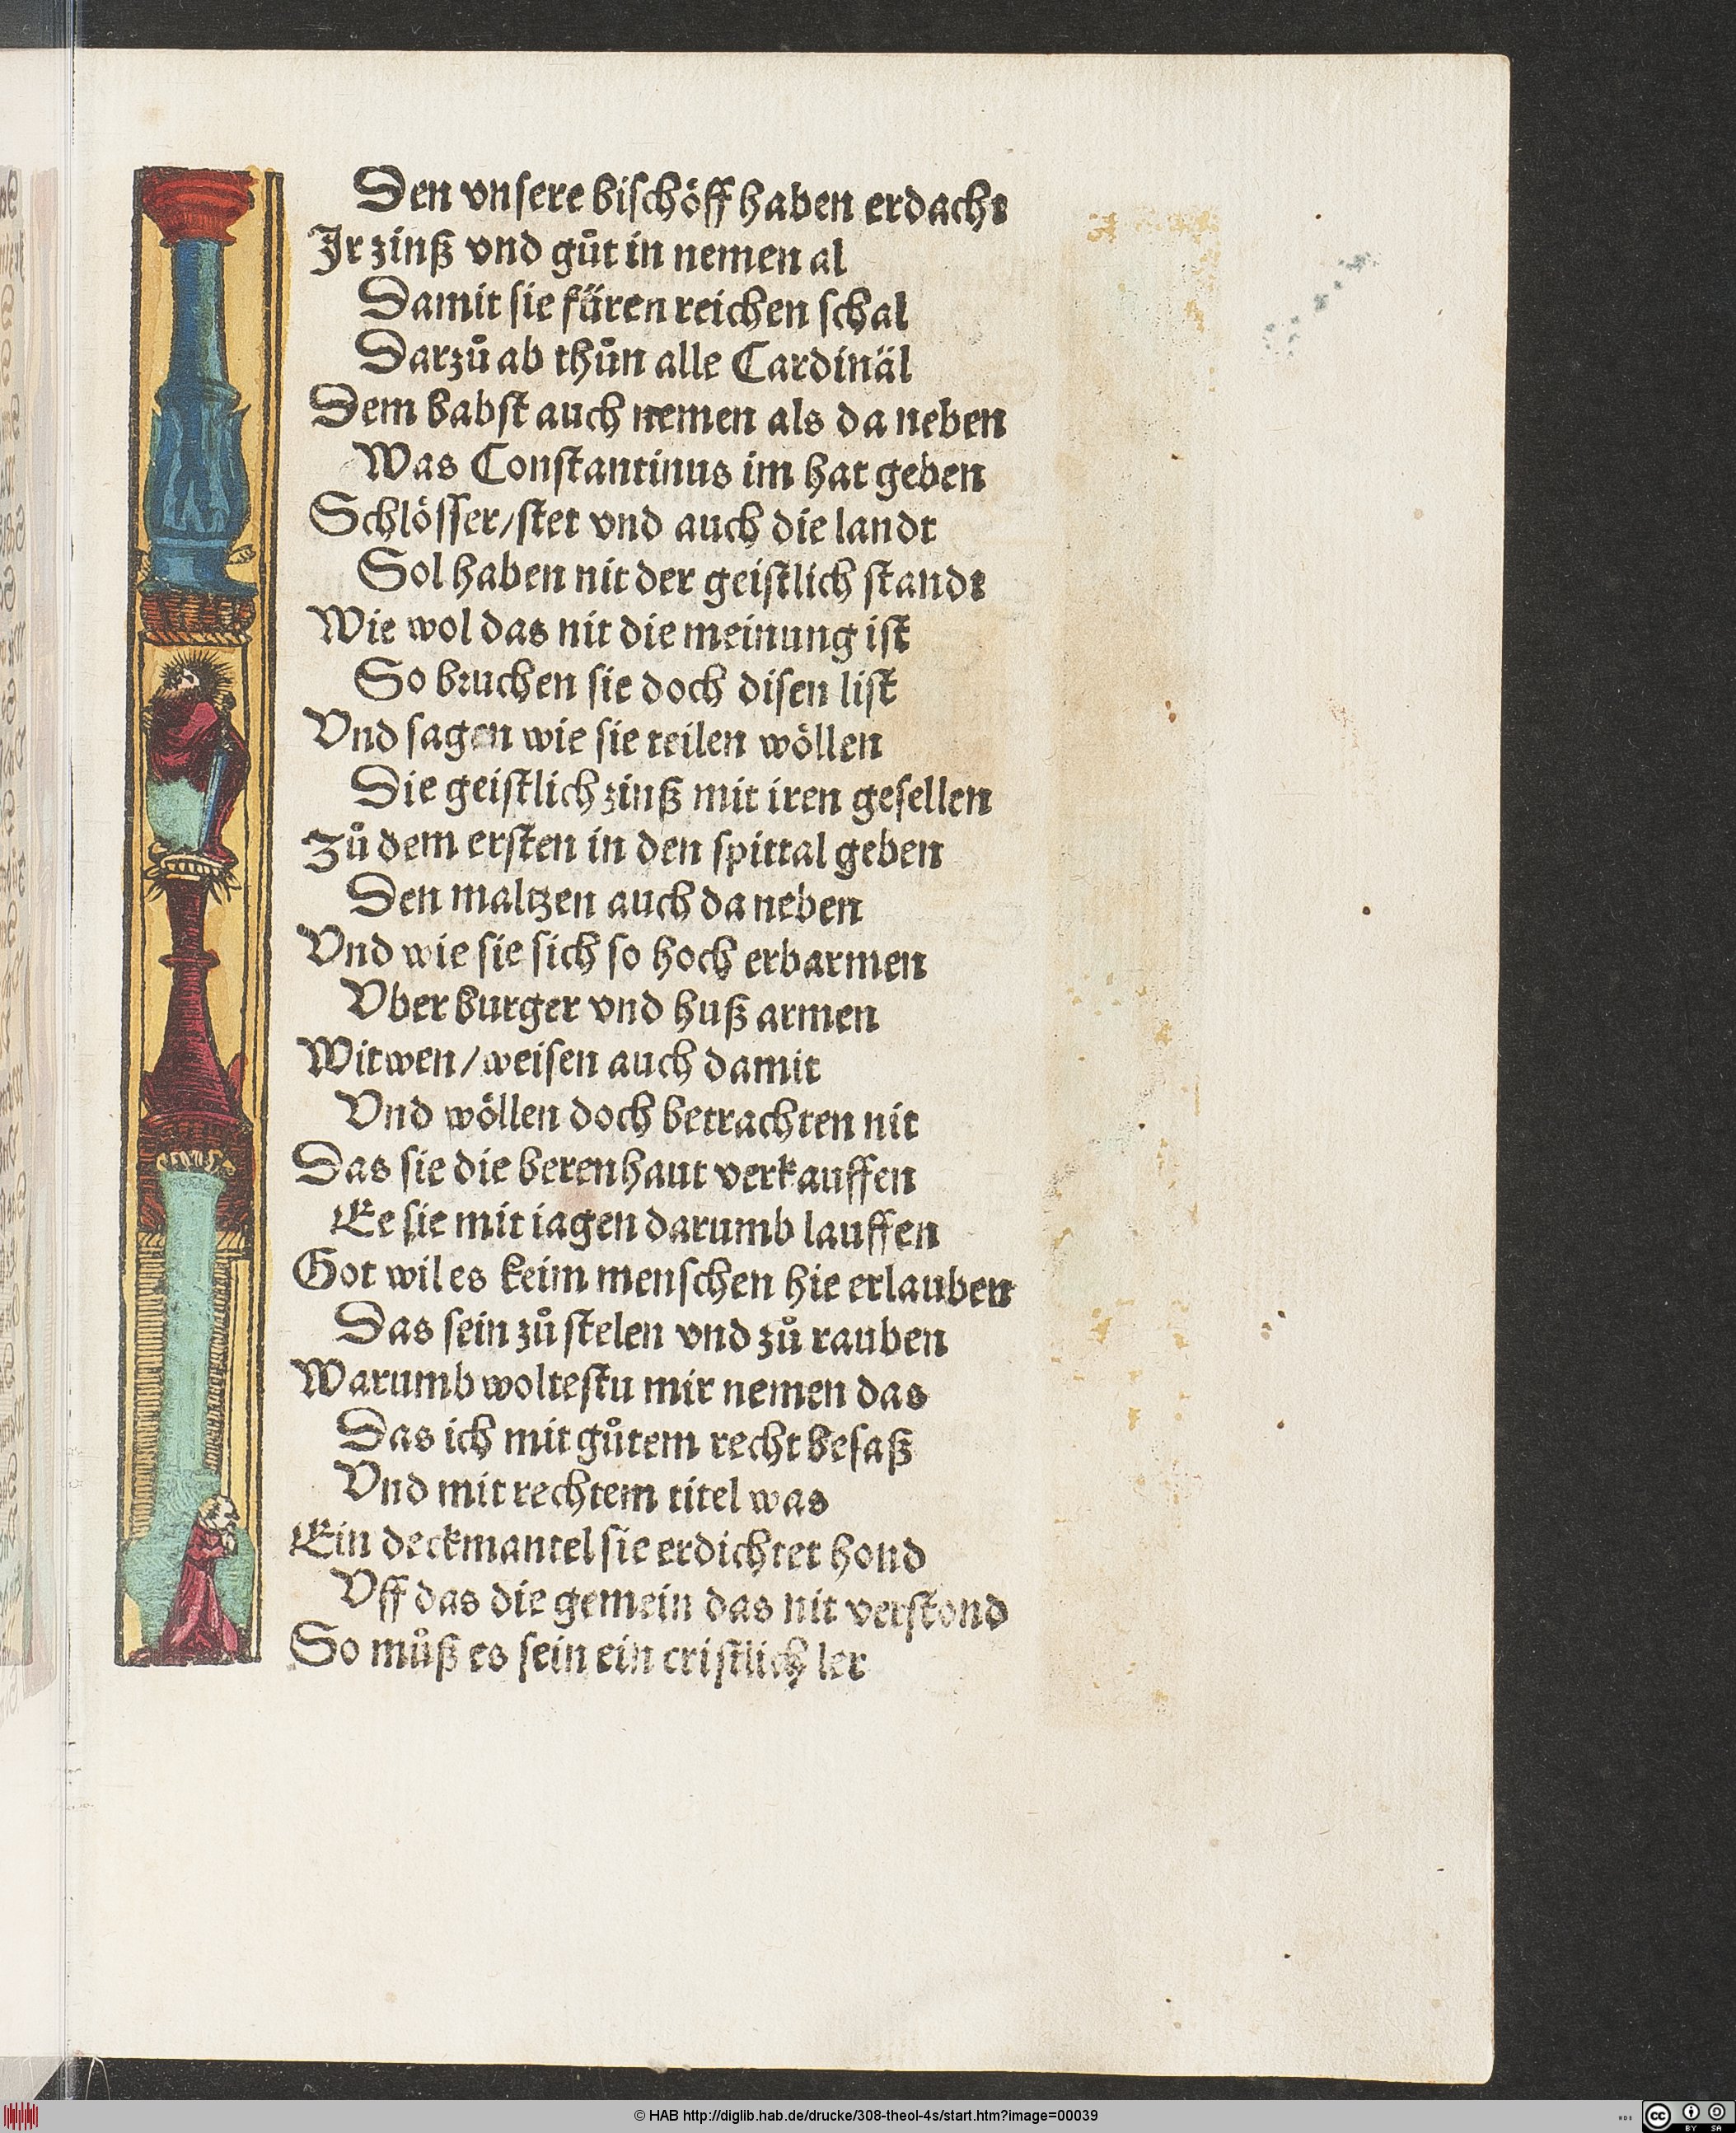 Den vnsere bischöff haben erdacht
Jr zinß vnd gůt in nemen al
Damit sie füren reichen schal
Darzů ab thůn alle Cardinäl
Dem babst auch nemen als da neben
Was Constantinus im hat geben
Schlösser/stet vnd auch die landt
Sol haben nit der geistlich standt
Wie wol das nit die meinung ist
So bruchen sie doch disen list
Vnd sagen wie sie teilen wöllen
Die geistlich zinß mit iren gesellen
Zů dem ersten in den spittal geben
Den maltzen auch da neben
Vnd wie sie sich so hoch erbarmen
Vber burger vnd huß armen
Witwen/weisen auch damit
Vnd wöllen doch betrachten nit
Das sie die berenhaut verkauffen
Ee sie mit iagen darumb lauffen
Got wil es keim menschen hie erlauben
Das sein zů stelen vnd zů rauben
Warumb woltestu mir nemen das
Das ich mit gůtem recht besaß
Vnd mit rechtem titel was
Ein deckmantel sie erdichtet hond
Vff das die gemein das nit verstond
So můß es sein ein cristlich ler
© HAB http://diglib.hab.de/drucke/308-theol-4s/start.htm?image=00039
cc BY SA